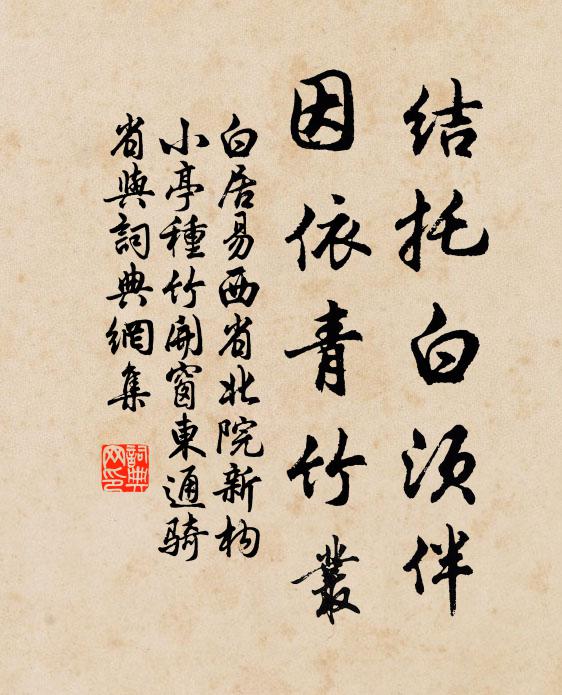 結托白須伴
因依青竹叢
白居易西省北院新构
小亭種竹開窗東通騎
省與詞典網集
詞典网印